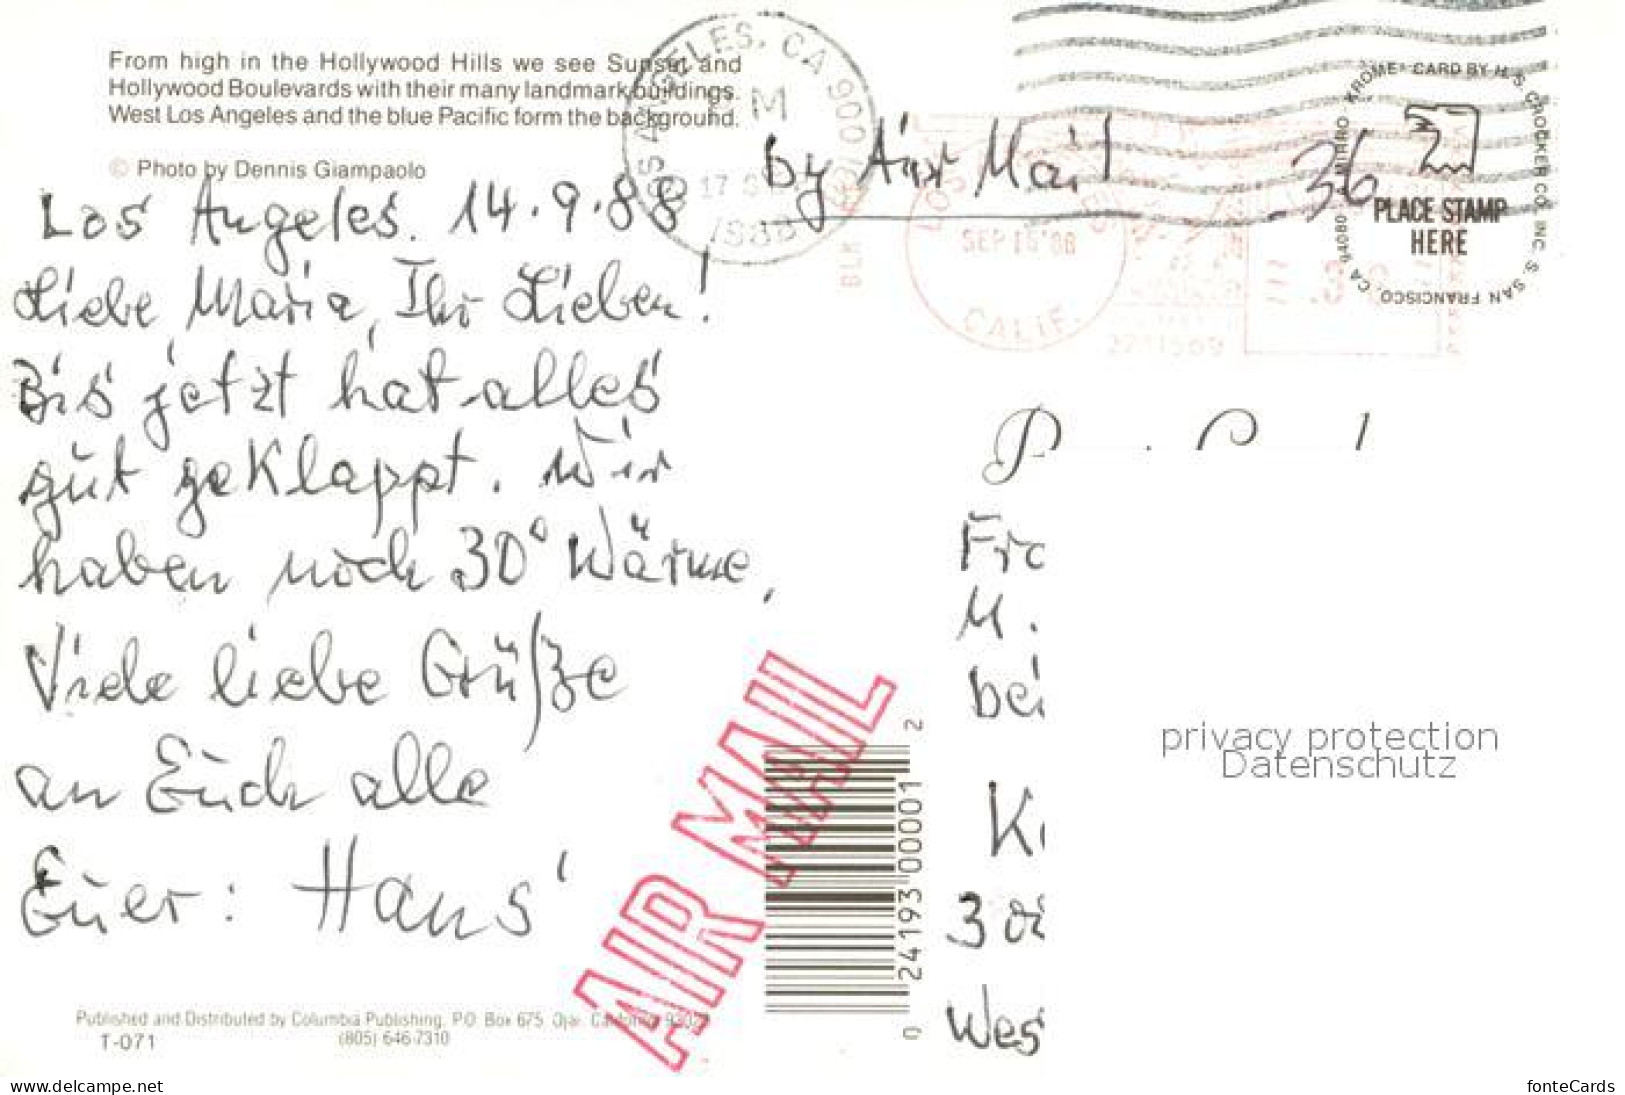 From high in the Hollywood Hills we see Sunset and
Hollywood Boulevards with their many landmark buildings.
West Los Angeles and the blue Pacific form the background.
© Photo by Dennis Giampaolo
Los Angeles. 14.9.88
Liebe Maria, Ihr Lieben!
Bis jetzt hat alles
gut geklappt. Wir
haben noch 30° Wärme,
Viele liebe Grüße
an Euch alle
Euer: Hans
Published and Distributed by Columbia Publishing, P.O. Box 675, Ojai, California
T-071
(805) 646-7310
LOS ANGELES, CA 900
17
1988
by Air Mail
.36
KROME CARD BY H.S. CROCKER CO. INC. S. SAN FRANCISCO, CA 94080
PLACE STAMP
HERE
SEP 15 '88
CALIF.
AIR MAIL
0 24193 00001 2
M.
privacy protection
Datenschutz
www.delcampe.net
fonteCards